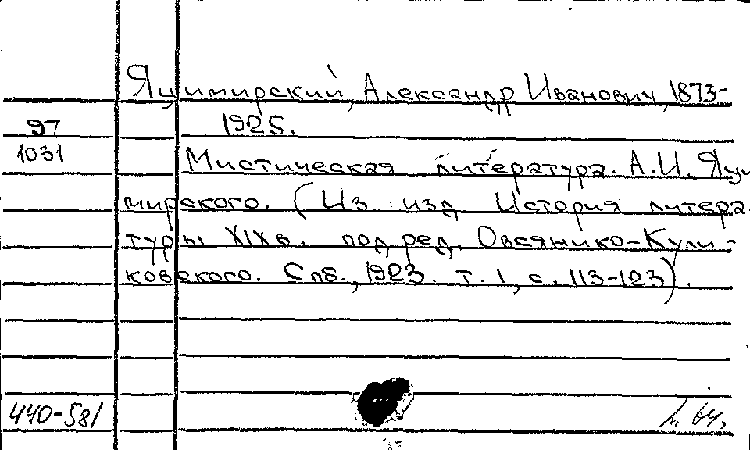 Яцимирский, Александр Иванович, 1873-
97 1925.
1031 Мистическая литература. А.И. Яци
мирского. (Из изд. История литера-
туры XIXв. под ред. Овсянико-Кули-
ковского. Спб., 1923. т. 1, с. 113-123).
440-581 л. 64.